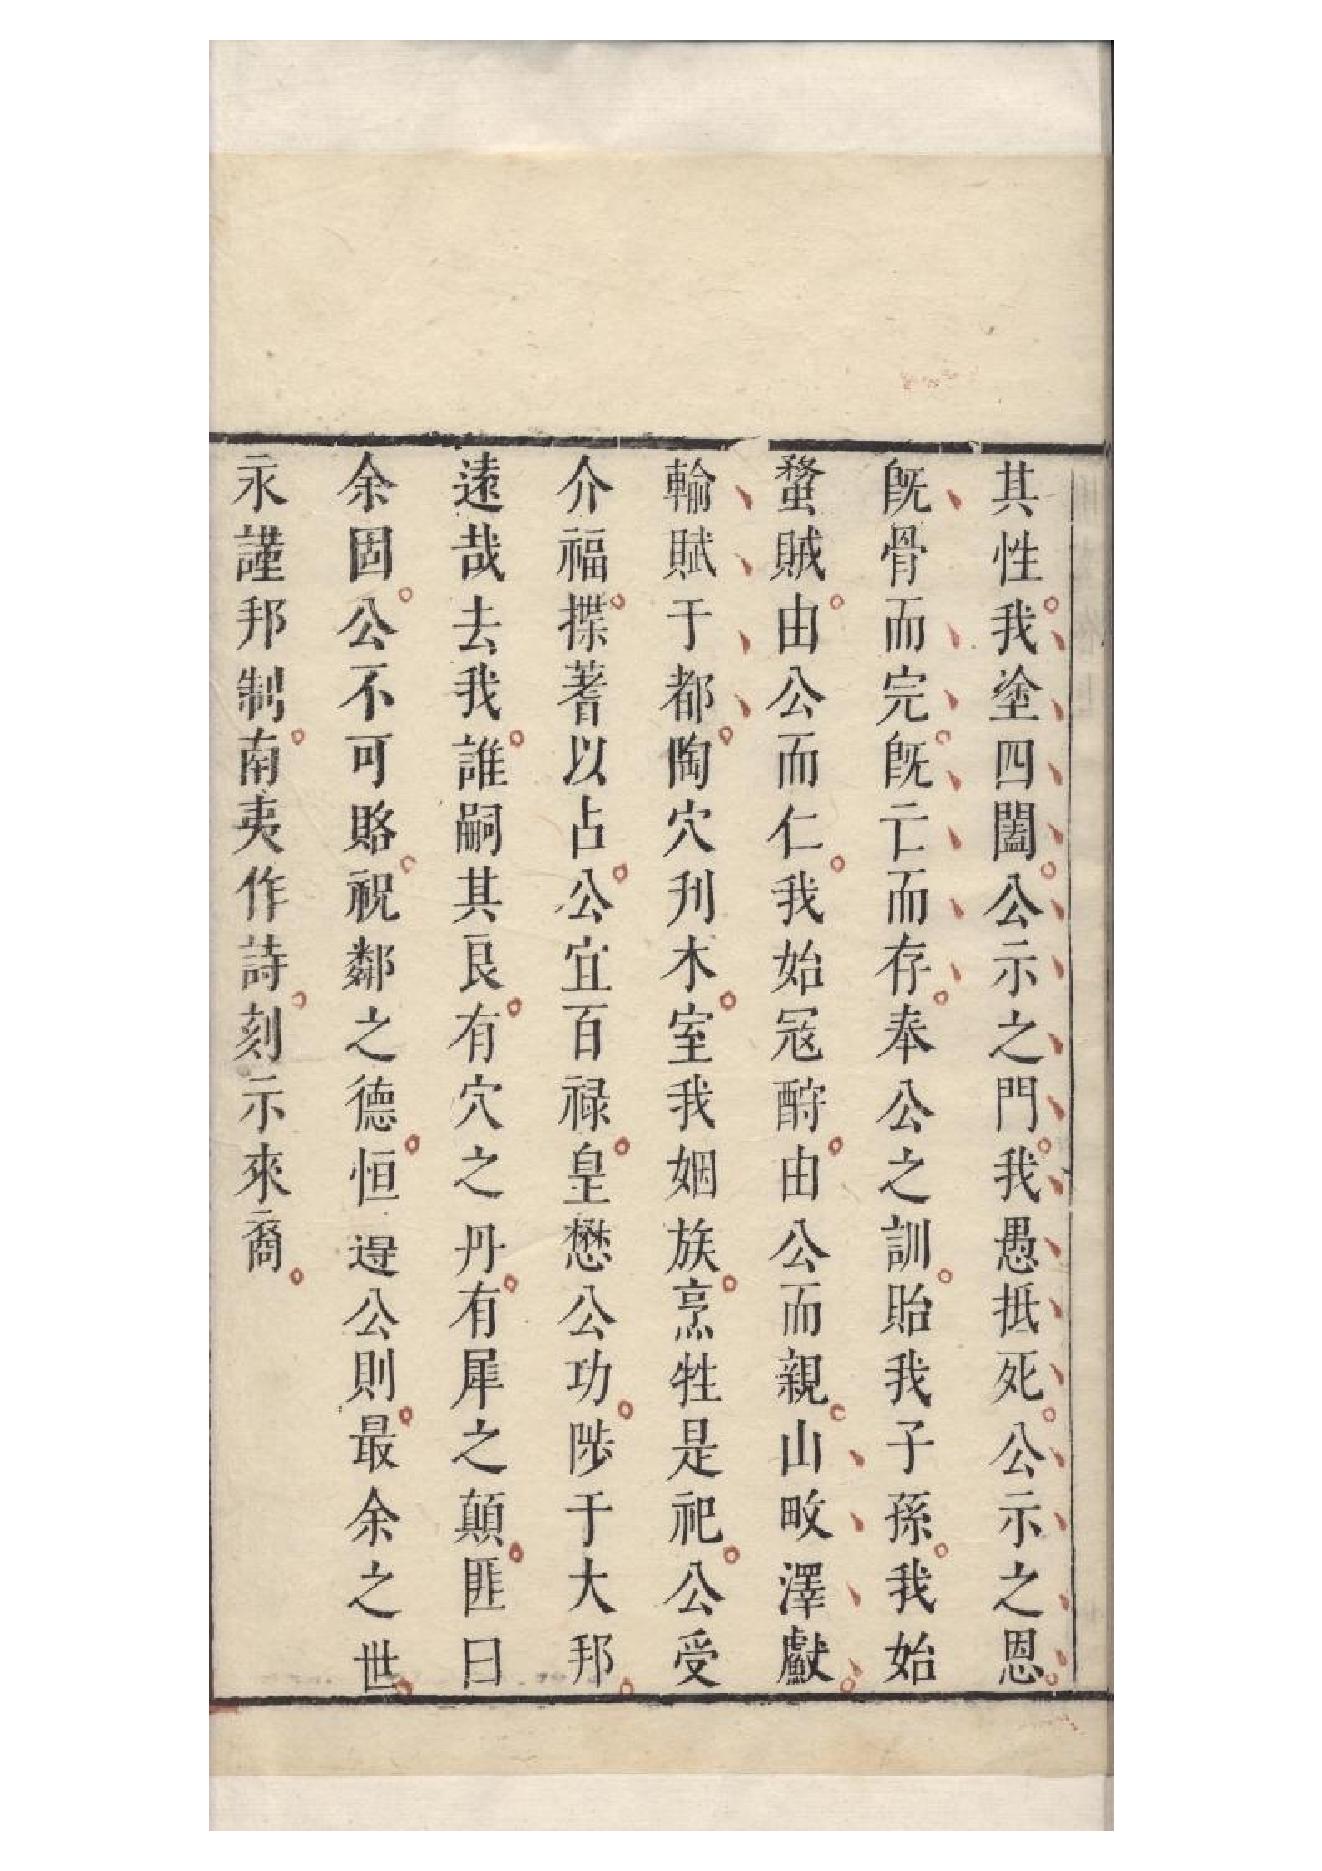 其性我塗四闔公示之門我愚抵死公示之恩
旣骨而完旣亡而存奉公之訓貽我子孫我始
蝥賊由公而仁我始寇酧由公而親山畋澤獻
輸賦于都陶穴刋木室我姻族烹牲是祀公受
介福揲蓍以占公宜百禄皇懋公功陟于大邦
遠哉去我誰嗣其良有穴之丹有犀之顛匪曰
余固公不可賂祝鄰之德恒遵公則最余之世
永謹邦制南夷作詩刻示來裔